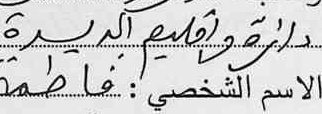 دائرة واقليم الدريسدة
الاسم الشخصي : فاطمة